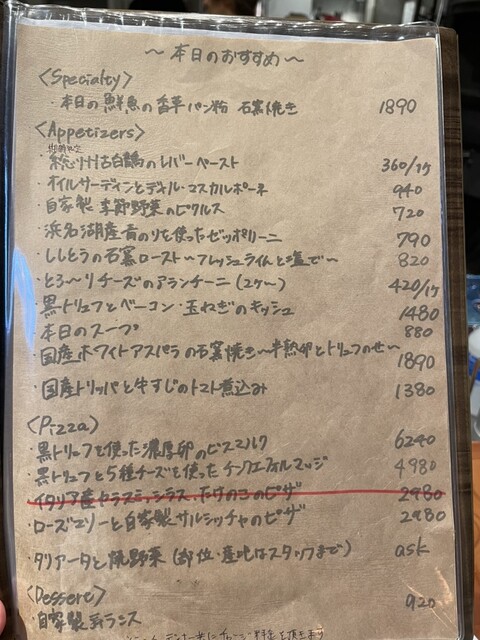 〜本日のおすすめ〜
〈Specialty〉
・本日の鮮魚の香草パン粉 石窯焼き 1890
〈Appetizers〉
・総州古白鶏のレバーペースト 360/1ヶ
・オイルサーディンとディル・マスカルポーネ 940
・自家製 季節野菜のピクルス 720
・浜名湖産青のりを使ったゼッポリーニ 790
・ししとうの石窯ロースト〜フレッシュライムと塩で〜 820
・とろ〜りチーズのアランチーニ(2ヶ〜) 420/1ヶ
・黒トリュフとベーコン・玉ねぎのキッシュ 1480
・本日のスープ 880
・国産ホワイトアスパラの石窯焼き〜半熟卵とトリュフのせ〜 1890
・国産トリッパと牛すじのトマト煮込み 1380
〈Pizza〉
・黒トリュフを使った濃厚卵のビスマルク 6240
・黒トリュフと5種チーズを使ったチンクエフォルマッジ 4980
・イタリア産カラスミ、シラス、たけのこのピザ 2980
・ローズマリーと自家製サルシッチャのピザ 2980
・タリアータと焼野菜(部位・産地はスタッフまで) ask
〈Dessert〉
・自家製ティラミス 920